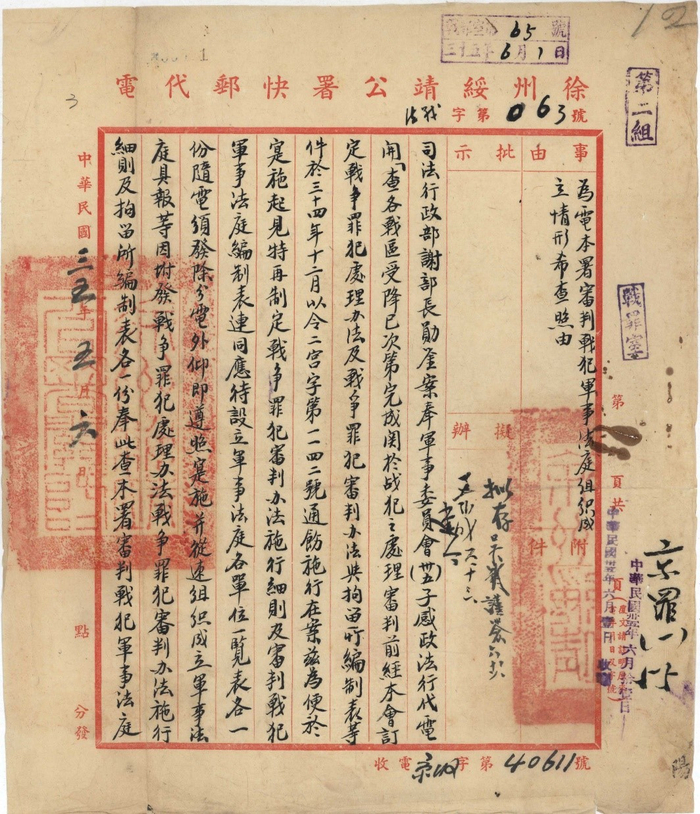 65 號
三十五年 6月1日
12
徐州綏靖公署快郵代電
戰法 字第 063 號
第二組
戰罪室
事由
批示
為電本署審判戰犯軍事法庭組織成
立情形希查照由
擬辦
附件
擬存
司法行政部謝部長勛鑒案奉軍事委員會(卅五)子感政法行代電
開「查各戰區受降已次第完成関於战犯之處理審判前經本會訂
定戰爭罪犯處理办法及戰爭罪犯審判办法與拘留所編制表等
件於三十四年十二月以令二宫字第一一四二號通飭施行在案兹為便於
寔施起見特再制定戰爭罪犯審判办法施行細則及審判戰犯
軍事法庭編制表連同應待設立軍事法庭各單位一覽表各一
份隨電頒發除分電外仰即遵照寔施并從速組織成立軍事法
庭具報等因坿發戰爭罪犯處理办法戰爭罪犯審判办法施行
細則及拘留所編制表各一份奉此查本署審判戰犯軍事法庭
中華民國三五年五月六日 點 分發
第 頁共 頁
收電京 字第 40611 號
陽